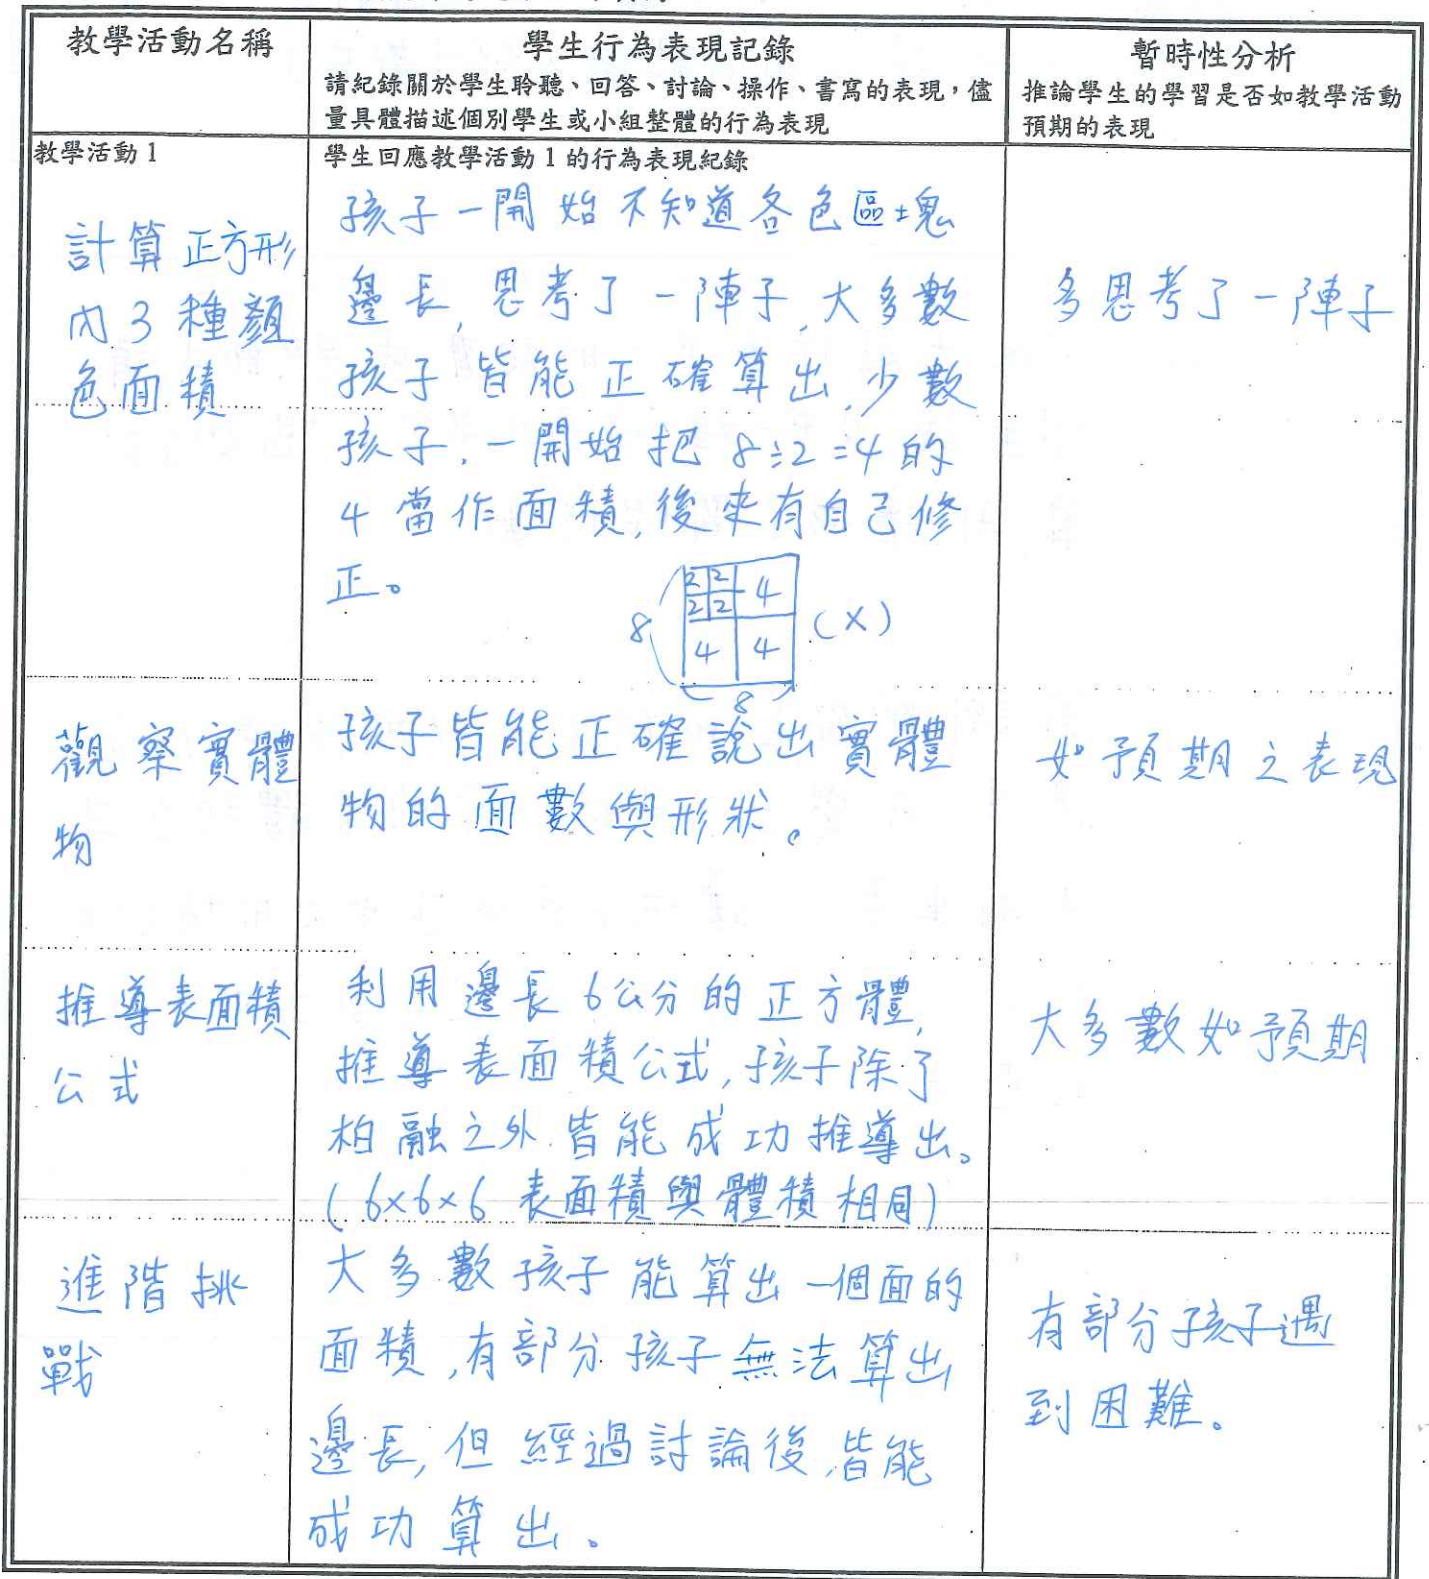 教學活動名稱
學生行為表現記錄
請紀錄關於學生聆聽、回答、討論、操作、書寫的表現，儘
量具體描述個別學生或小組整體的行為表現
暫時性分析
推論學生的學習是否如教學活動
預期的表現
教學活動1
計算正方形
內3種顏
色面積
學生回應教學活動1的行為表現紀錄
孩子一開始不知道各色區塊
邊長,思考了一陣子,大多數
孩子皆能正確算出,少數
孩子,一開始把8÷2=4的
4當作面積,後來有自己修
正。
2 2 4
2 2
8
4 4
(×)
8
多思考了一陣子
觀察實體
物
孩子皆能正確說出實體
物的面數與形狀。
如預期之表現
推導表面積
公式
利用邊長6公分的正方體,
推導表面積公式,孩子除了
柏融之外皆能成功推導出。
(6×6×6 表面積與體積相同)
大多數如預期
進階挑
戰
大多數孩子能算出一個面的
面積,有部分孩子無法算出
邊長,但經過討論後,皆能
成功算出。
有部分孩子遇
到困難。